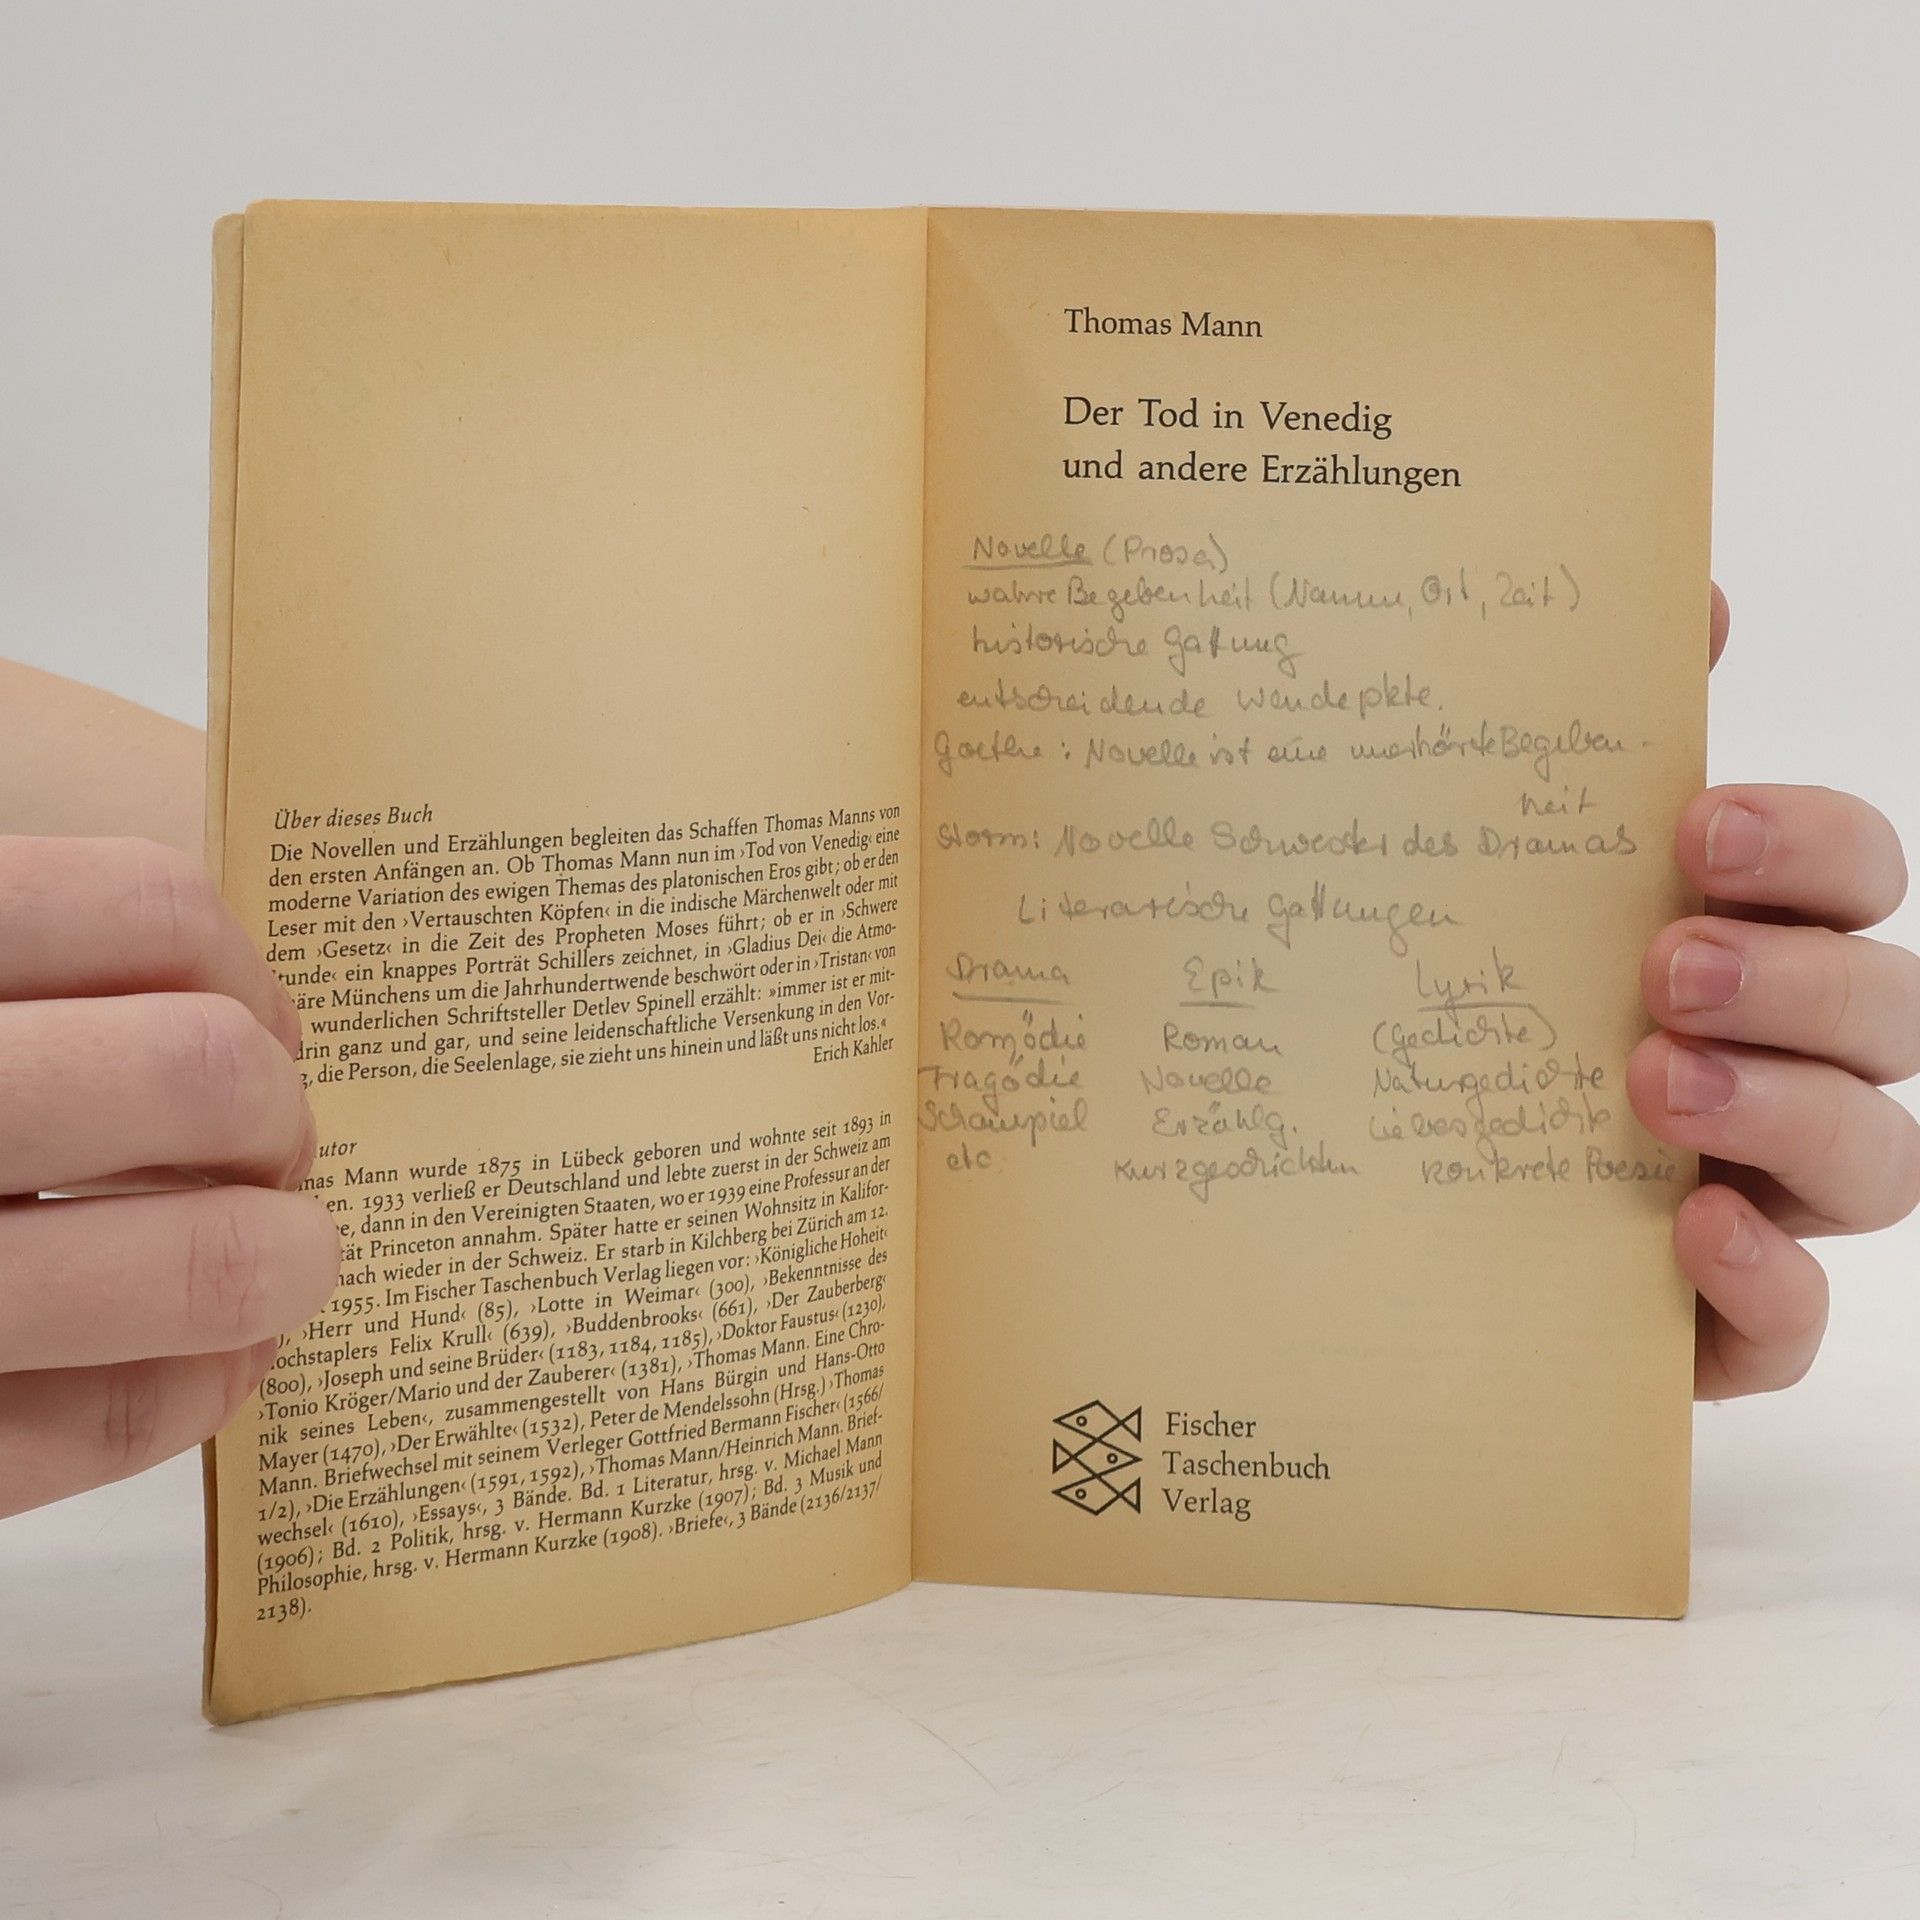 Über dieses Buch
Die Novellen und Erzählungen begleiten das Schaffen Thomas Manns von
den ersten Anfängen an. Ob Thomas Mann nun im ›Tod von Venedig‹ eine
moderne Variation des ewigen Themas des platonischen Eros gibt; ob er den
Leser mit den ›Vertauschten Köpfen‹ in die indische Märchenwelt oder mit
dem ›Gesetz‹ in die Zeit des Propheten Moses führt; ob er in ›Schwere
tunde‹ ein knappes Porträt Schillers zeichnet, in ›Gladius Dei‹ die Atmo-
äre Münchens um die Jahrhundertwende beschwört oder in ›Tristan‹ von
wunderlichen Schriftsteller Detlev Spinell erzählt: »immer ist er mit-
drin ganz und gar, und seine leidenschaftliche Versenkung in den Vor-
g, die Person, die Seelenlage, sie zieht uns hinein und läßt uns nicht los.«
Erich Kahler
utor
mas Mann wurde 1875 in Lübeck geboren und wohnte seit 1893 in
en. 1933 verließ er Deutschland und lebte zuerst in der Schweiz am
e, dann in den Vereinigten Staaten, wo er 1939 eine Professur an der
tät Princeton annahm. Später hatte er seinen Wohnsitz in Kalifor-
nach wieder in der Schweiz. Er starb in Kilchberg bei Zürich am 12.
1955. Im Fischer Taschenbuch Verlag liegen vor: ›Königliche Hoheit‹
), ›Herr und Hund‹ (85), ›Lotte in Weimar‹ (300), ›Bekenntnisse des
ochstaplers Felix Krull‹ (639), ›Buddenbrooks‹ (661), ›Der Zauberberg‹
(800), ›Joseph und seine Brüder‹ (1183, 1184, 1185), ›Doktor Faustus‹ (1230),
›Tonio Kröger/Mario und der Zauberer‹ (1381), ›Thomas Mann. Eine Chro-
nik seines Leben‹, zusammengestellt von Hans Bürgin und Hans-Otto
Mayer (1470), ›Der Erwählte‹ (1532), Peter de Mendelssohn (Hrsg.) ›Thomas
Mann. Briefwechsel mit seinem Verleger Gottfried Bermann Fischer‹ (1566/
1/2), ›Die Erzählungen‹ (1591, 1592), ›Thomas Mann/Heinrich Mann. Brief-
wechsel‹ (1610), ›Essays‹, 3 Bände. Bd. 1 Literatur, hrsg. v. Michael Mann
(1906); Bd. 2 Politik, hrsg. v. Hermann Kurzke (1907); Bd. 3 Musik und
Philosophie, hrsg. v. Hermann Kurzke (1908). ›Briefe‹, 3 Bände (2136/2137/
2138).
Thomas Mann
Der Tod in Venedig
und andere Erzählungen
Novelle (Prosa)
wahre Begebenheit (Namen, Ort, Zeit)
historische Gattung
entscheidende Wendepkte.
Goethe: Novelle ist eine unerhörte Begeben-
heit
Storm: Novelle Schwester des Dramas
Literarische Gattungen
Drama Epik Lyrik
Komödie Roman (Gedichte)
Tragödie Novelle Naturgedichte
Schauspiel Erzählg. Liebesgedichte
etc. Kurzgeschichten konkrete Poesie
Fischer
Taschenbuch
Verlag